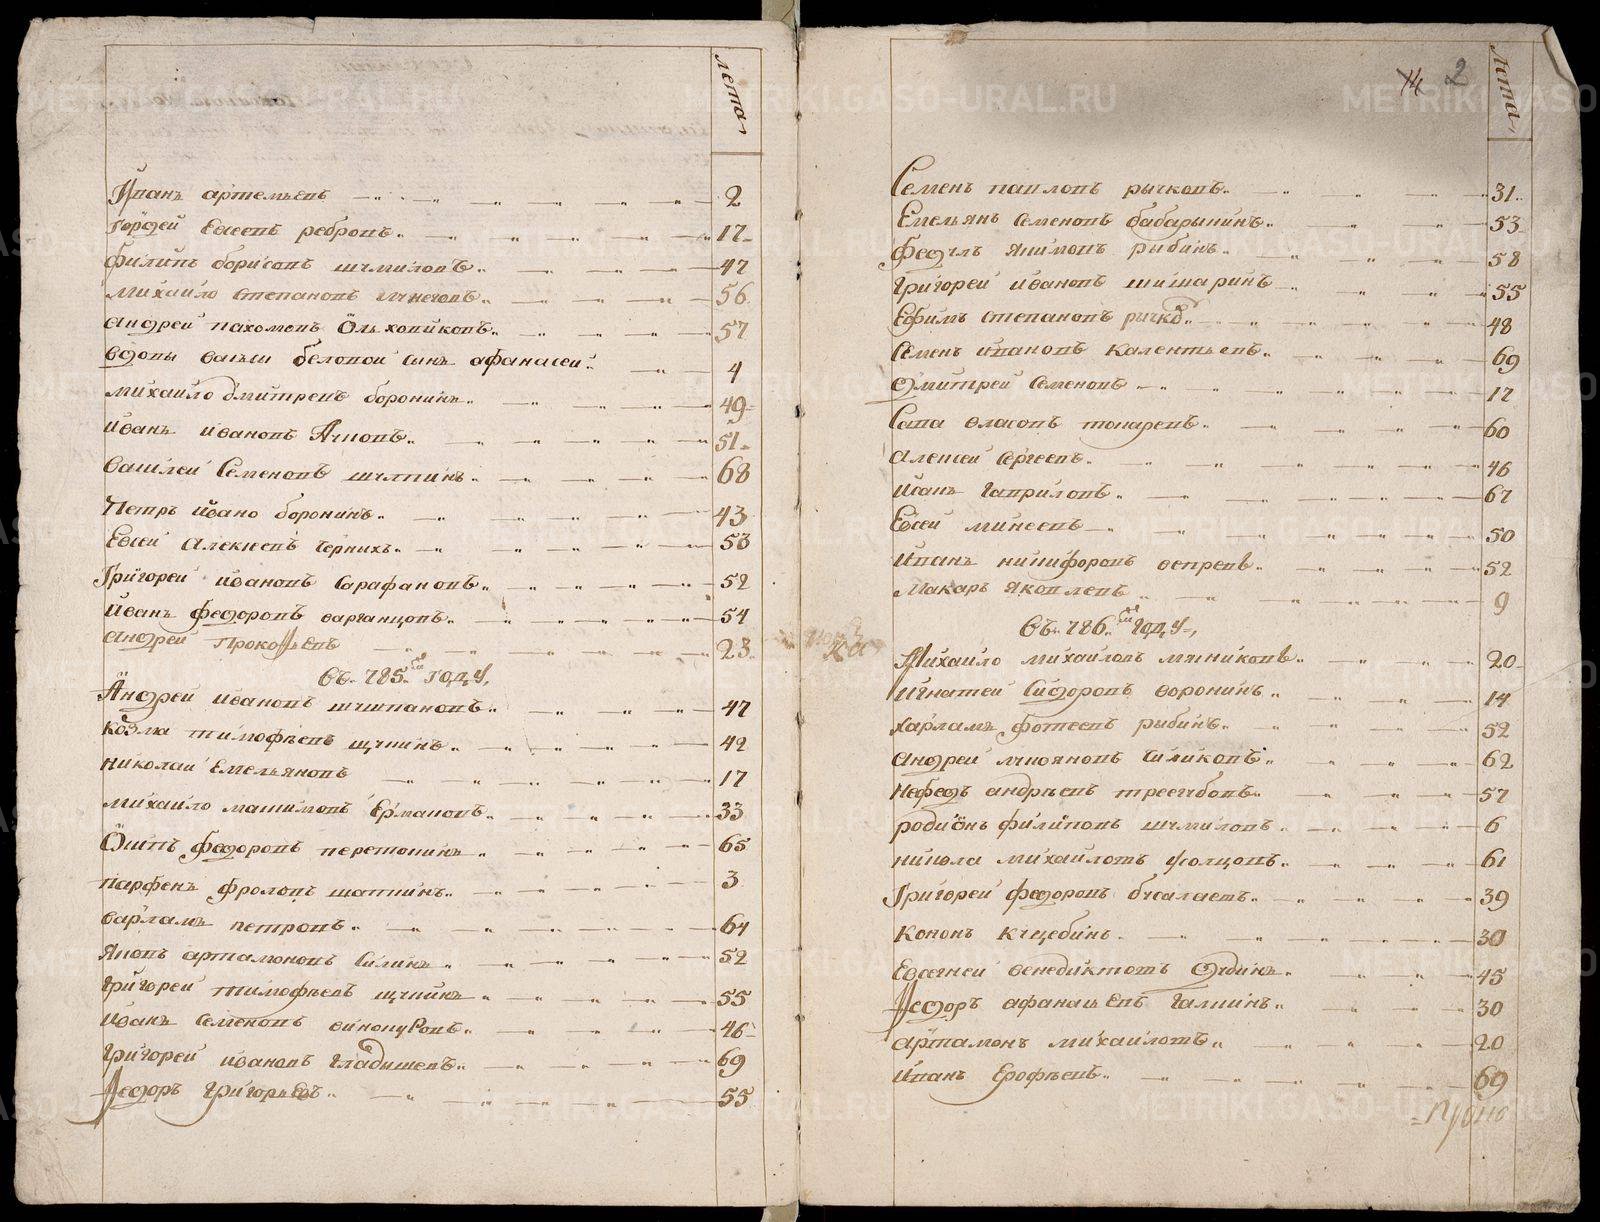 лета
Иванъ артемьевъ 2
Гордей Евсеевъ ребровъ 17
филипъ борисовъ шумиловъ 47
михаило степановъ 56
андрей пахомовъ Ольховиковъ 57
вдовы беловой сынъ афанасей 4
михаило дмитревъ воронинъ 49
иванъ ивановъ 51
василей Семеновъ 68
Петръ ивано воронинъ 43
Евсей алексеевъ чернихъ 53
Григорей ивановъ Сарафановъ 52
иванъ федоровъ варганцовъ 54
андрей Прокопьевъ 23
въ 785м году
Андрей ивановъ 47
козма тимофеевъ щукинъ 42
николаи Емельяновъ 17
михаило максимовъ Ермаковъ 33
Осипъ федоровъ перетокинъ 65
парфенъ фроловъ шапкинъ 3
варламъ петровъ 64
яковъ артамоновъ Силинъ 52
григорей тимофеевъ щукинъ 55
иванъ семеновъ винокуровъ 46
григорей ивановъ гладышевъ 69
Федоръ Григорьевъ 55
14 2
лета
Семенъ павловъ рычковъ 31
Емельянъ семеновъ бабарыкинъ 53
федулъ якимовъ рыбинъ 58
григорей ивановъ шишаринъ 55
Ефимъ степановъ ричко 48
Семенъ ивановъ калентьевъ 69
дмитрей семеновъ 17
Сава власовъ токаревъ 60
алексей сергеевъ 46
иванъ гавриловъ 67
Евсей минеевъ 50
иванъ никифоровъ вепревъ 52
макаръ яковлевъ 9
въ 786м году
Михаило михаиловъ мясниковъ 20
игнатей Сидоровъ воронинъ 14
харламъ фотеевъ рыбинъ 52
андрей лукояновъ Силиковъ 62
нефедъ андреевъ трегубовъ 57
родионъ филиповъ шумиловъ 6
никола михаиловъ усолцовъ 61
Григорей федоровъ бусалаевъ 39
кононъ 30
Евсегней венедиктовъ 45
Федоръ афанасьевъ галкинъ 30
артамонъ михаиловъ 20
иванъ Ерофеевъ 69